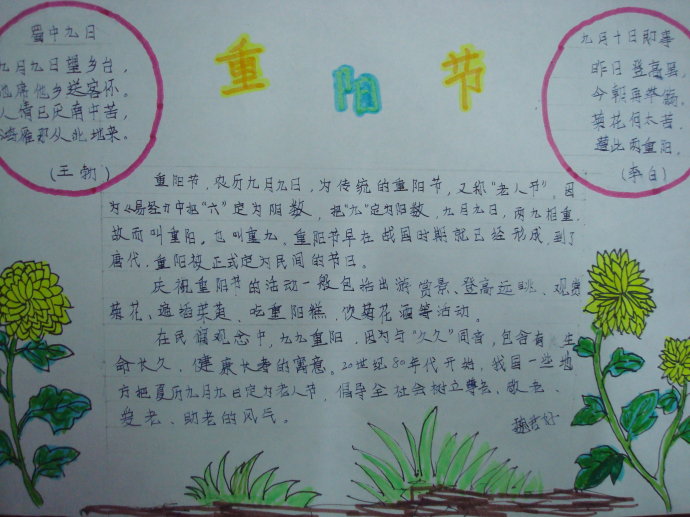 重阳节
蜀中九日
九月九日望乡台，
席他乡送客杯。
人情已厌南中苦，
鸿雁那从北地来。
(王勃)
九月十日即事
昨日登高罢，
今朝再举觞。
菊花何太苦，
遭此两重阳。
(李白)
重阳节，农历九月九日，为传统的重阳节，又称“老人节”。因
为《易经》中把“六”定为阴数，把“九”定为阳数，九月九日，两九相重，
故而叫重阳，也叫重九，重阳节早在战国时期就已经形成，到了
唐代，重阳被正式定为民间的节日。
庆祝重阳节的活动一般包括出游赏景、登高远眺、观赏
菊花、遍插茱萸、吃重阳糕、饮菊花酒等活动。
在民俗观念中，九九重阳，因为与“久久”同音，包含有生
命长久，健康长寿的寓意。20世纪80年代开始，我国一些地
方把夏历九月九日定为老人节，倡导全社会树立尊老、敬老、
爱老、助老的风气。